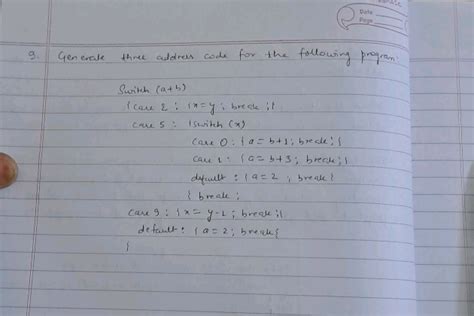 Date
Page
9. Generate three address code for the following program.
Switch (a+b)
{ case 2 : { x = y ; break ; }
case 5 : { switch (x)
case 0 : { a = b+1 ; break ; }
case 1 : { a = b+3 ; break ; }
default : { a = 2 ; break }
} break ;
case 9 : { x = y-1 ; break ; }
default : { a = 2 ; break }
}